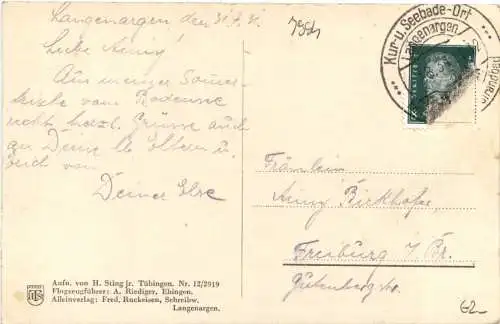 Langenargen den 31.7.31.
Liebe Anny!
Aus meiner Sommer-
frische vom Bodensee
recht herzl. Grüsse auch
an Deine lb. Eltern u.
Dich von
Deiner Else
Kur- u. Seebade-Ort
Langenargen
Fräulein
Anny Birkhofer
Freiburg i/Br.
Gutenbergstr.
Aufn. von H. Sting jr. Tübingen. Nr. 12/2919
Flugzeugführer: A. Riediger, Ehingen.
Alleinverlag: Fred. Ruckeisen, Schreibw.
Langenargen.
62-